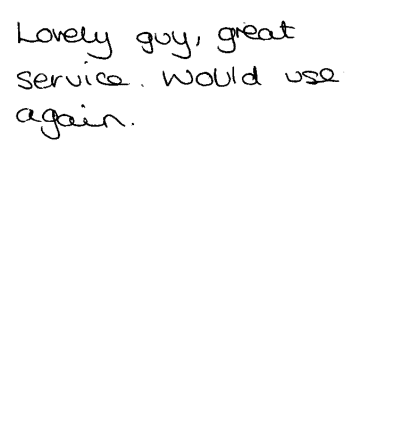 Lovely guy, great
service. Would use
again.